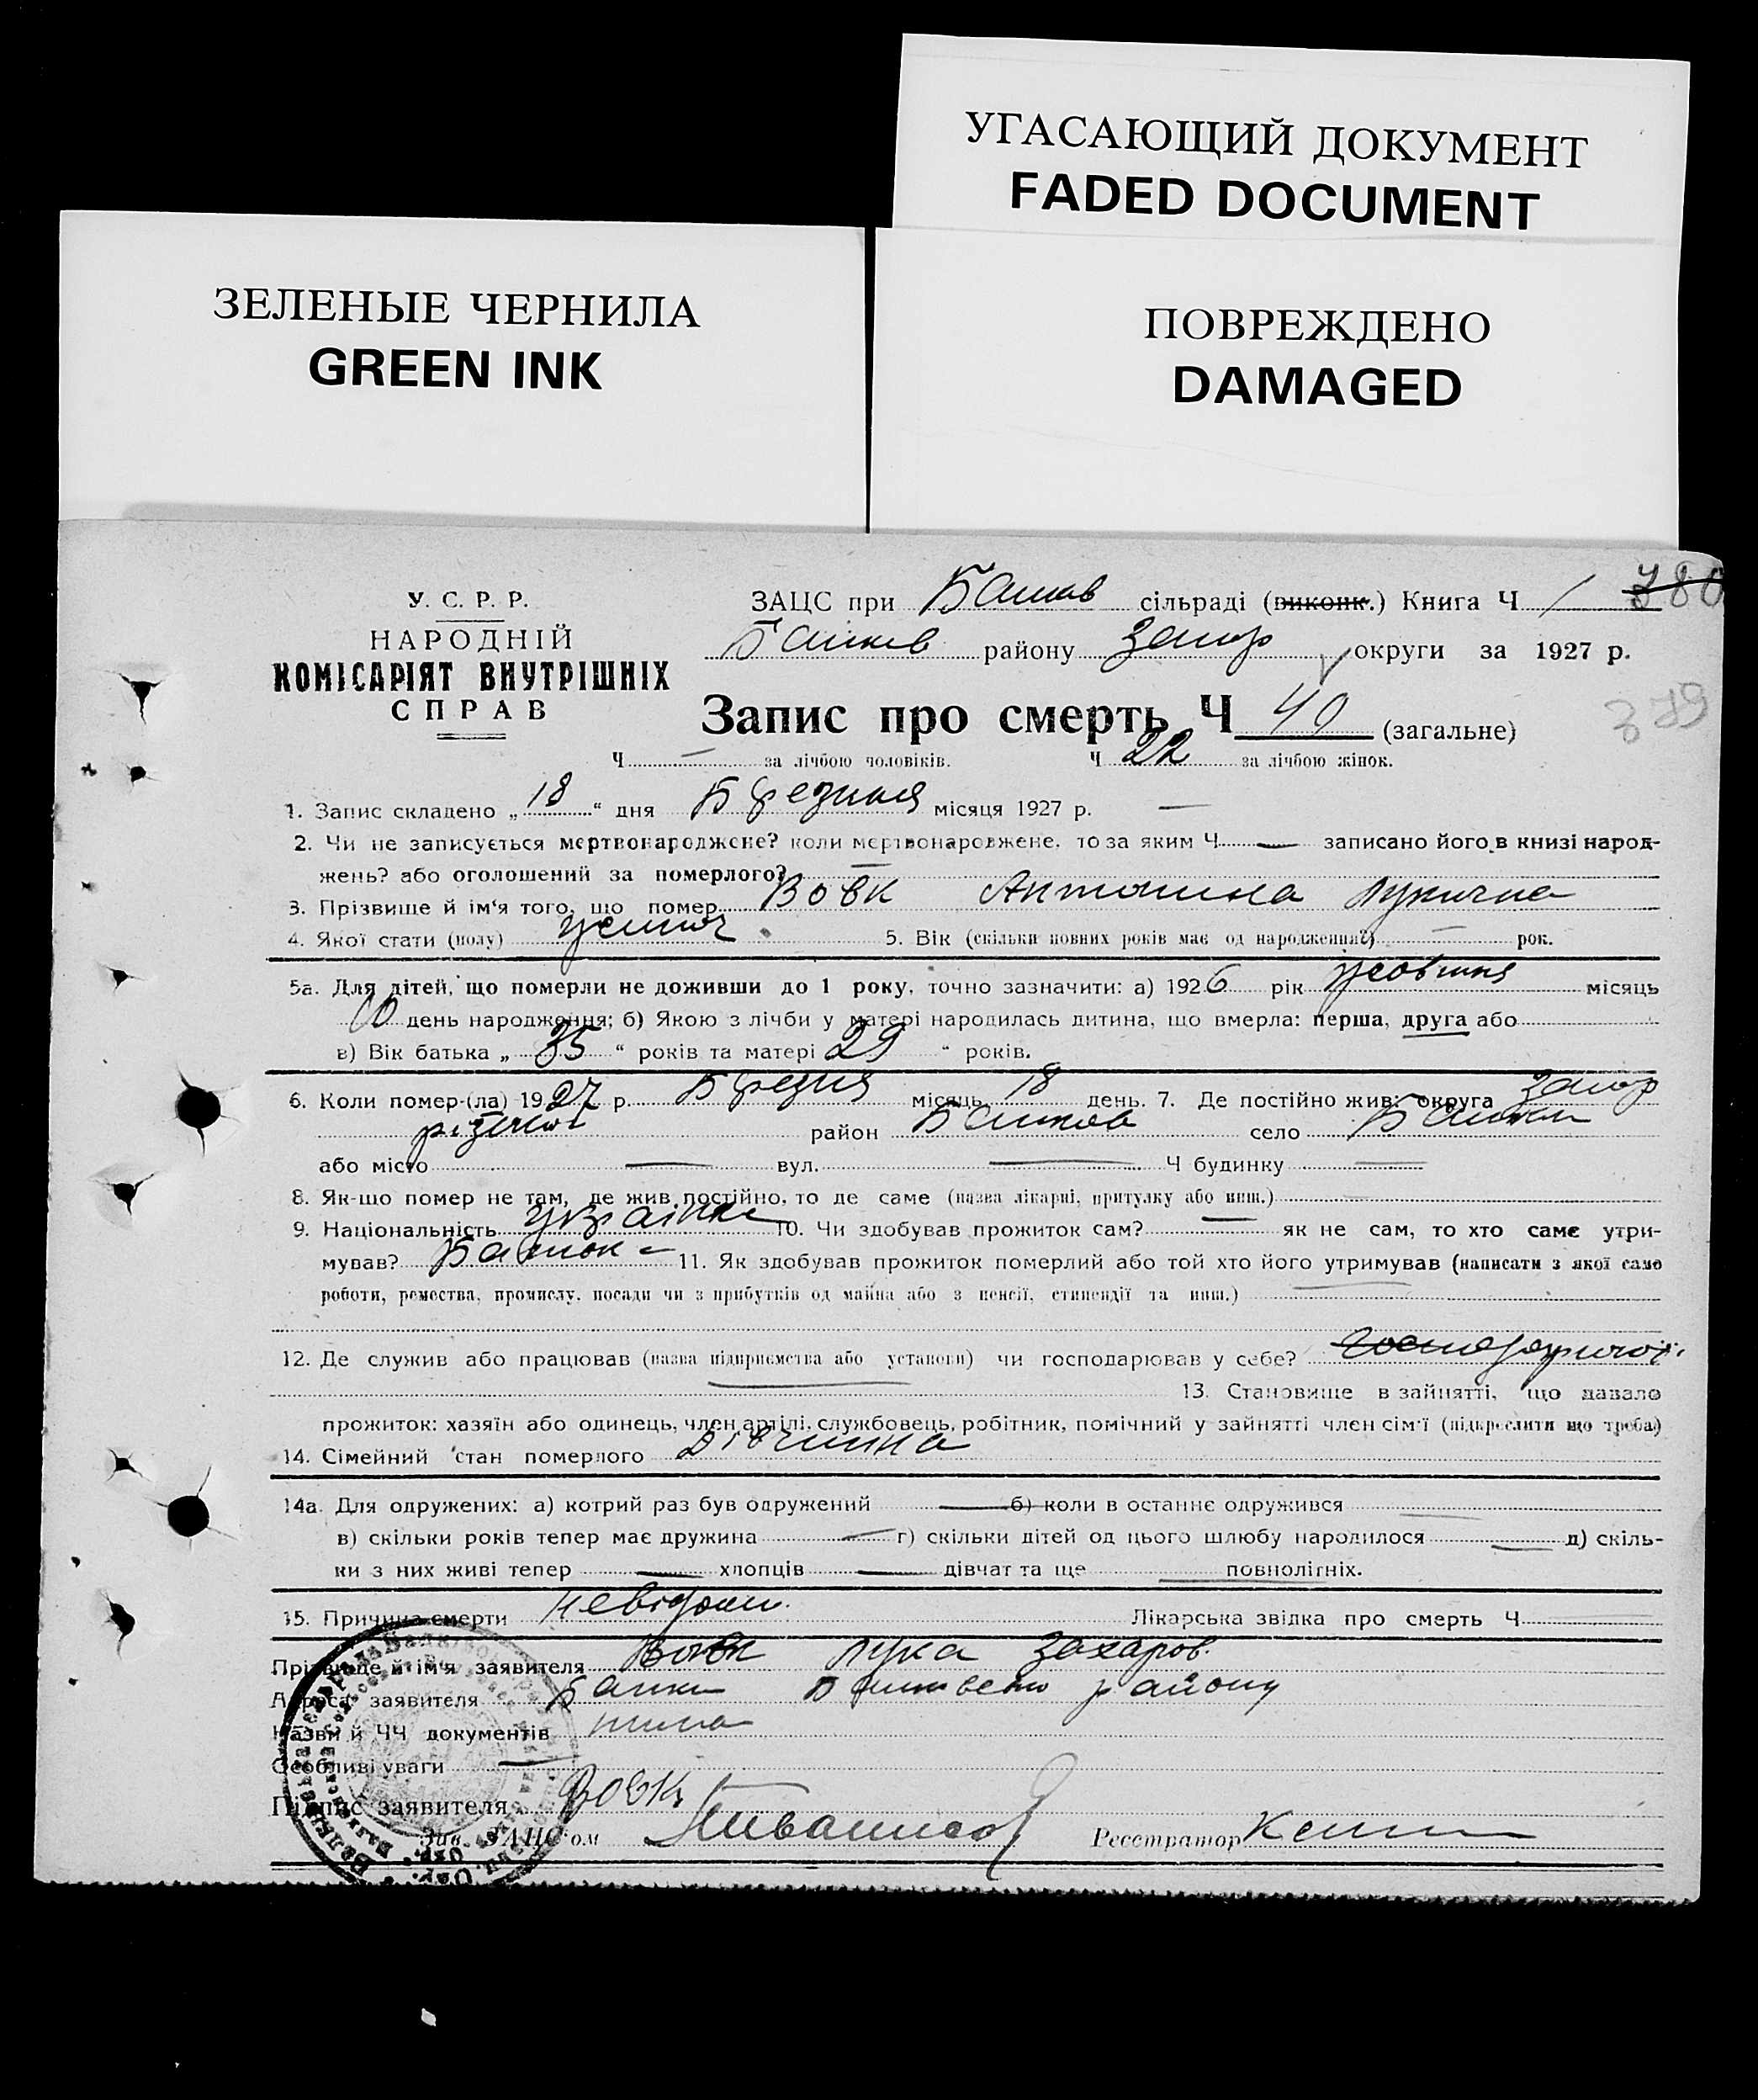 УГАСАЮЩИЙ ДОКУМЕНТ
FADED DOCUMENT
ЗЕЛЕНЫЕ ЧЕРНИЛА
GREEN INK
ПОВРЕЖДЕНО
DAMAGED
У. С. Р. Р.
НАРОДНІЙ
КОМІСАРІЯТ ВНУТРІШНІХ
СПРАВ
ЗАЦС при сільраді (виконк.) Книга Ч 1 380
району Запор округи за 1927 р.
379
Запис про смерть Ч 40 (загальне)
Ч — за лічбою чоловіків. Ч 22 за лічбою жінок.
1. Запис складено „ 18 “ дня Березня місяця 1927 р. —
2. Чи не записується мертвонароджене? коли мертвонаровжене, то за яким Ч — записано його в книзі народ-
жень? або оголошений за померлого? —
3. Прізвище й ім'я того, що помер Вовк Антонина Лукична
4. Якої стати (полу) жіноч. 5. Вік (скільки повних років має од народження?) — рок.
5а. Для дітей, що померли не доживши до 1 року, точно зазначити: а) 1926 рік жовтня місяць
10 день народження; б) Якою з лічби у матері народилась дитина, що вмерла: перша, друга або
в) Вік батька „ 35 “ років та матері 29 “ років.
6. Коли помер-(ла) 1927 р. Березня місяць 18 день. 7. Де постійно жив: округа Запор
район село
або місто — вул. — Ч будинку —
8. Як-що помер не там, де жив постійно, то де саме (назва лікарні, притулку або инш.)
9. Національність українка 10. Чи здобував прожиток сам? — як не сам, то хто саме утри-
мував? Батько — 11. Як здобував прожиток померлий або той хто його утримував (написати з якої само
роботи, ремества, промислу, посади чи з прибутків од майна або з пенсії, стипендії та инш.) —
12. Де служив або працював (назва підприємства або установи) чи господарював у себе?
— 13. Становище в зайнятті, що давало
прожиток: хазяїн або одинець, член артілі, службовець, робітник, помічний у зайнятті член сім'ї (підкреслити що треба)
14. Сімейний стан померлого дівчина
14а. Для одружених: а) котрий раз був одружений — б) коли в останнє одружився —
в) скільки років тепер має дружина — г) скільки дітей од цього шлюбу народилося — д) скіль-
ки з них живі тепер — хлопців — дівчат та ще — повнолітніх.
15. Причина смерти невідома. Лікарська звідка про смерть Ч
Прізвище й ім'я заявителя Вовк Лука Захаров.
Адреса заявителя району
Назви й ЧЧ документів нима
Особливі уваги —
Підпис заявителя Вовк
Зав. ЗАЦС'ом Реєстратор